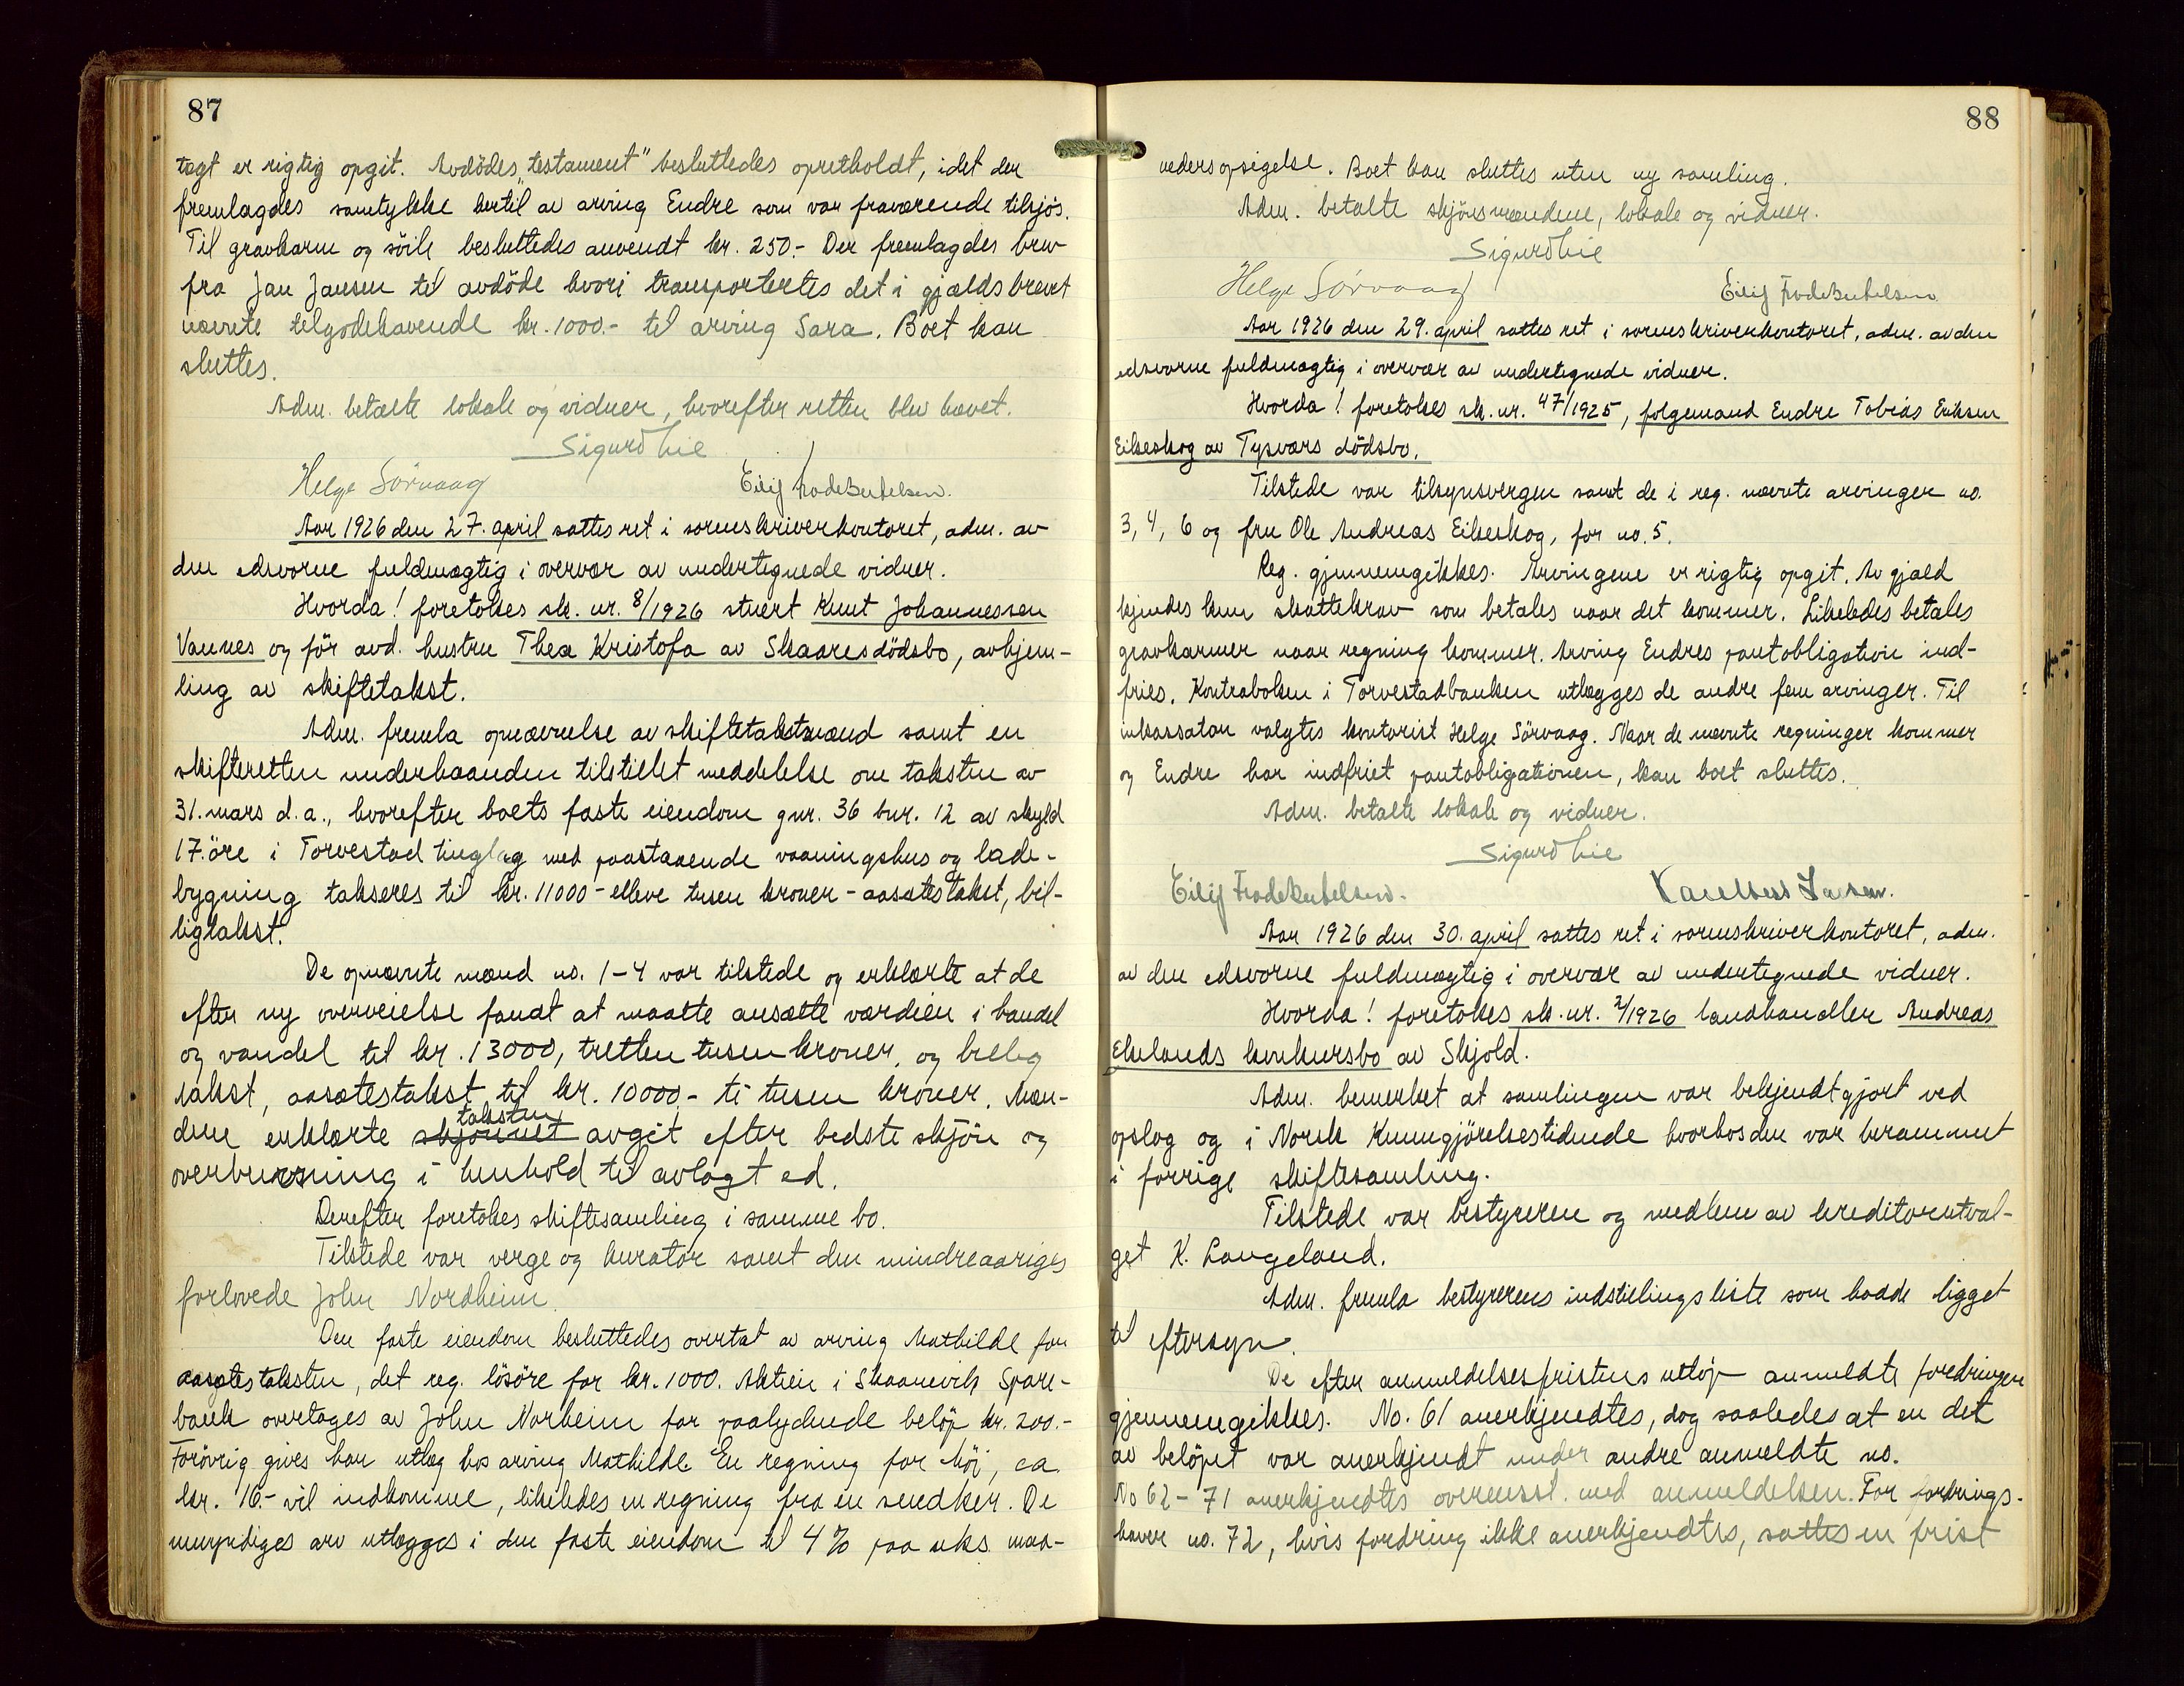 87
tagt er rigtig opgit. Avdödes „testament" besluttedes opretholdt, idet der
fremlagdes samtykke hertil av arving Endre som var fraværende tilsjös.
Til gravkarm og söile besluttedes anvendt kr. 250.- Der fremlagdes brev
fra Jan Jansen til avdöde hvori transportertes det i gjældsbrevet
nævnte tilgodehavende kr. 1000.- til arving Sara. Boet kan
sluttes.
Adm. betalte lokale og vidner, hvorefter retten blev hævet.
Sigurd Lie
Helge Sörvaag Eilif
Aar 1926 den 27. april sattes ret i sorenskriverkontoret, adm. av
den edsvorne fuldmægtig i overvær av undertegnede vidner.
Hvorda! foretokes sk. nr. 8/1926 stuert Knut Johannessen
Vannes og för avd. hustru Thea Kristofa av Skaares dödsbo, avhjem-
ling av skiftetakst.
Adm. fremla opnævnelse av skiftetakstmænd samt en
skifteretten underhaanden tilstillet meddelelse om taksten av
31. mars d.a., hvorefter boets faste eiendom gnr. 36 bnr. 12 av skyld
17. öre i Torvestad tinglag med paastaaende vaaningshus og lade-
bygning takseres til kr. 11000 - elleve tusen kroner - aasætestakst, bil-
ligtakst.
De opnævnte mænd no. 1-4 var tilstede og erklærte at de
efter ny overveielse fandt at maatte ansætte værdien i handel
og vandel til kr. 13000, tretten tusen kroner, og billig
takst, aasætestakst til kr. 10000,- ti tusen kroner. Mæn-
taksten
dene erklærte skjönnet avgit efter bedste skjön og
overbevisning i henhold til avlagt ed.
Derefter foretokes skiftesamling i samme bo.
Tilstede var verge og kurator samt den mindreaariges
forlovede John Nordheim.
Den faste eiendom besluttedes overtat av arving Mathilde for
aasætestaksten, det reg. lösöre for kr. 1000. Aktien i Skaanevik Spare-
bank overtages av John Norheim for paalydende belöp kr. 200.-
Forövrig gives han utlæg hos arving Mathilde. En regning for höi, ca
kr. 16.- vil indkomme, likeledes en regning fra en snedker. De
umyndiges arv utlægges i den faste eiendom til 4% paa seks maa-
88
nedersopsigelse. Boet kan sluttes uten ny samling.
Adm. betalte skjönsmændene, lokale og vidner.
Sigurd Lie
Helge Sörvaag Eilif
Aar 1926 den 29. april sattes ret i sorenskriverkontoret, adm. av den
edsvorne fuldmægtig i overvær av undertegnede vidner.
Hvorda! foretokes sk. nr. 47/1925, folgemand Endre Tobias Eriksen
Eikeskog av Tysværs dödsbo.
Tilstede var tilsynsvergen samt de i reg. nævnte arvinger no.
3, 4, 6 og fru Ole Andreas Eikeskog, for no. 5.
Reg. gjennemgikkes. Arvingene er rigtig opgit. Av gjæld
kjendes kun skattekrav som betales naar det kommer. Likeledes betales
gravkarmer naar regning kommer. Arving Endres pantobligation ind-
fries. Kontraboken i Torvestadbanken utlægges de andre fem arvinger. Til
inkassator valgtes kontorist Helge Sörvaag. Naar de nævnte regninger kommer
og Endre har indfriet pantobligationen, kan boet sluttes.
Adm. betalte lokale og vidner.
Sigurd Lie
Eilif
Aar 1926 den 30. april sattes ret i sorenskriverkontoret, adm.
av den edsvorne fuldmægtig i overvær av undertegnede vidner.
Hvorda! foretokes sk. nr. 2/1926 landhandler Andreas
Ekelands konkursbo av Skjold.
Adm. bemerket at samlingen var bekjendtgjort ved
opslag og i Norsk Kunngjörelsestidende hvorhos den var berammet
i forrige skiftesamling.
Tilstede var bestyreren og medlem av kreditorutval-
get K. Langeland.
Adm. fremla bestyrerens indstillingsliste som hadde ligget
til eftersyn.
De efter anmeldelsesfristens utlöp anmeldte fordringer
gjennemgikkes. No. 61 anerkjendtes, dog saaledes at en del
av belöpet var anerkjendt under andre anmeldte no.
No 62 - 71 anerkjendtes overensst. med anmeldelsen. For fordrings-
haver no. 72, hvis fordring ikke anerkjendtes, sattes en frist